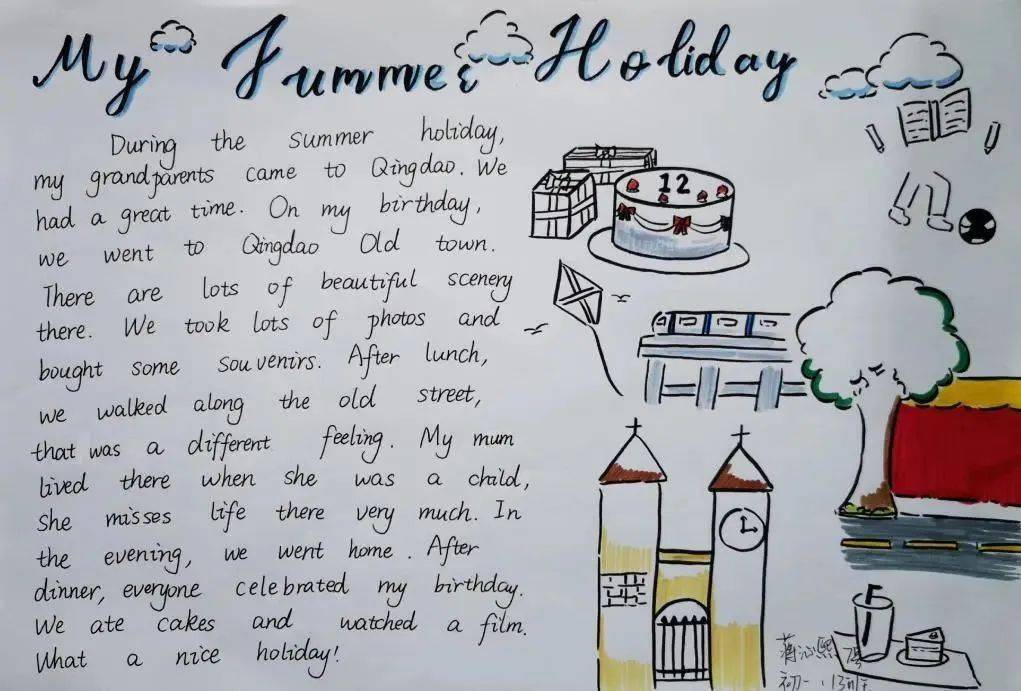 My Summer Holiday
During the summer holiday,
my grandparents came to Qingdao. We
had a great time. On my birthday,
we went to Qingdao Old town.
There are lots of beautiful scenery
there. We took lots of photos and
bought some souvenirs. After lunch,
we walked along the old street,
that was a different feeling. My mum
lived there when she was a child,
She misses life there very much. In
the evening, we went home. After
dinner, everyone celebrated my birthday.
We ate cakes and watched a film.
What a nice holiday!
12
蒋沁熙
初一